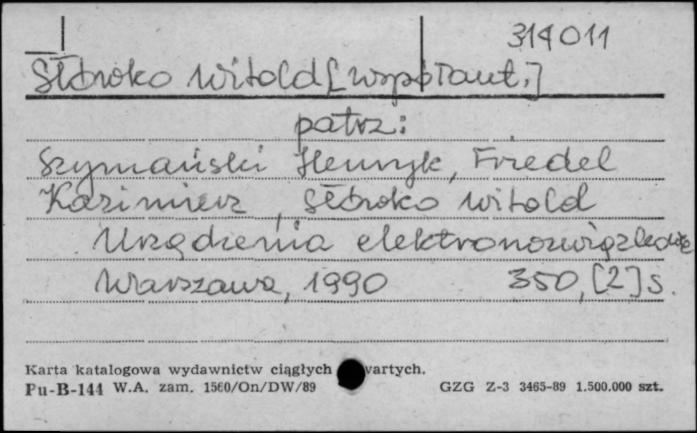 314011
Słówko Witold [współaut.]
patrz:
Szymański Henryk, Friedel
Kazimierz, Słówko Witold
Urządzenia elektronawigacyjne
Warszawa, 1990 350, [2] s.
Karta katalogowa wydawnictw ciągłych wartych.
Pu-B-144 W.A. zam. 1560/On/DW/89 GZG Z-3 3465-89 1.500.000 szt.